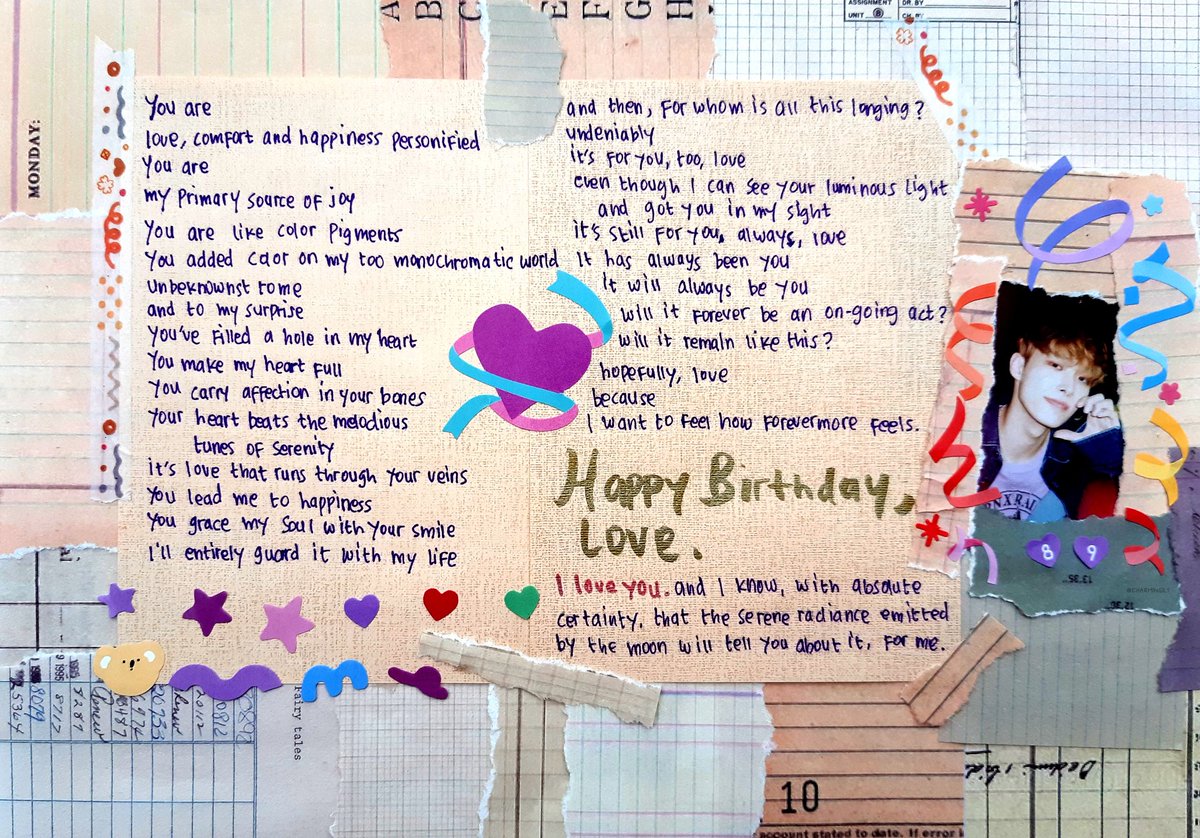 A B C E F G H
ASSIGNMENT
UNIT 8
DR. BY
CH. BY
MONDAY:
You are
love, comfort and happiness personified
You are
my primary source of joy
You are like color pigments
You added color on my too monochromatic world
unbeknownst to me
and to my surprise
You've filled a hole in my heart
You make my heart full
You carry affection in your bones
Your heart beats the melodious
tunes of serenity
it's love that runs through your veins
You lead me to happiness
You grace my soul with your smile
I'll entirely guard it with my life
and then, for whom is all this longing?
undeniably
it's for you, too, love
even though I can see your luminous light
and got you in my sight
it's still for you, always, love
It has always been you
It will always be you
will it forever be an on-going act?
will it remain like this?
hopefully, love
because
I want to feel how forevermore feels.
Happy Birthday,
Love.
I love you. and I know, with absolute
certainty, that the serene radiance emitted
by the moon will tell you about it, for me.
8 9
13.35
12.35
Fairy tales
10
account stated to date. If error